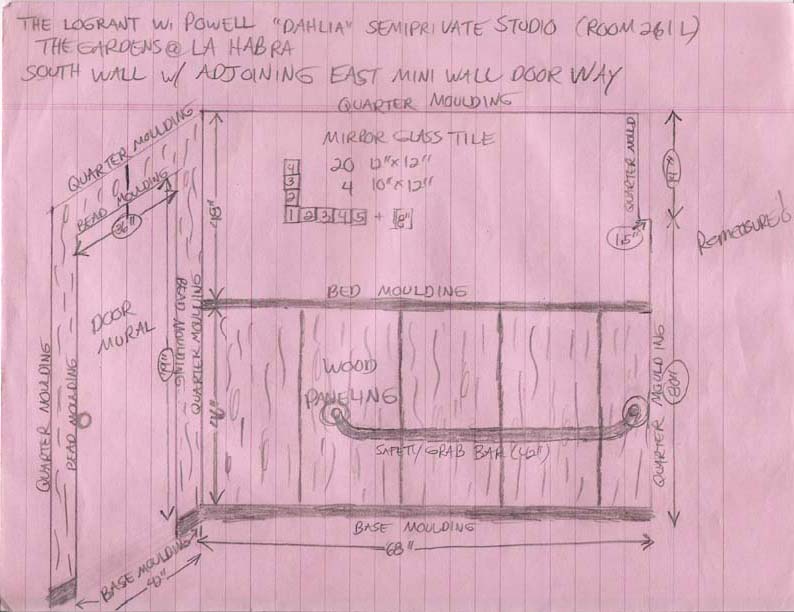 THE LOGRANT W/ POWELL "DAHLIA" SEMIPRIVATE STUDIO (ROOM 261L)
THE GARDENS @ LA HABRA
SOUTH WALL W/ ADJOINING EAST MINI WALL DOOR WAY
QUARTER MOULDING
QUARTER MOULDING
BEAD MOULDING
36"
MIRROR GLASS TILE
20 12"X12"
4 10"X12"
4
3
2
1 2 3 4 5 + 8"
QUARTER MOULD
1.5"
REMEASURE!
48"
BED MOULDING
DOOR
MURAL
79"
BEAD MOULDING
QUARTER MOULDING
46"
WOOD
PANELING
SAFETY/GRAB BAR (42")
QUARTER MOULDING
80"
QUARTER MOULDING
BEAD MOULDING
BASE MOULDING
68"
BASE MOULDING
42"